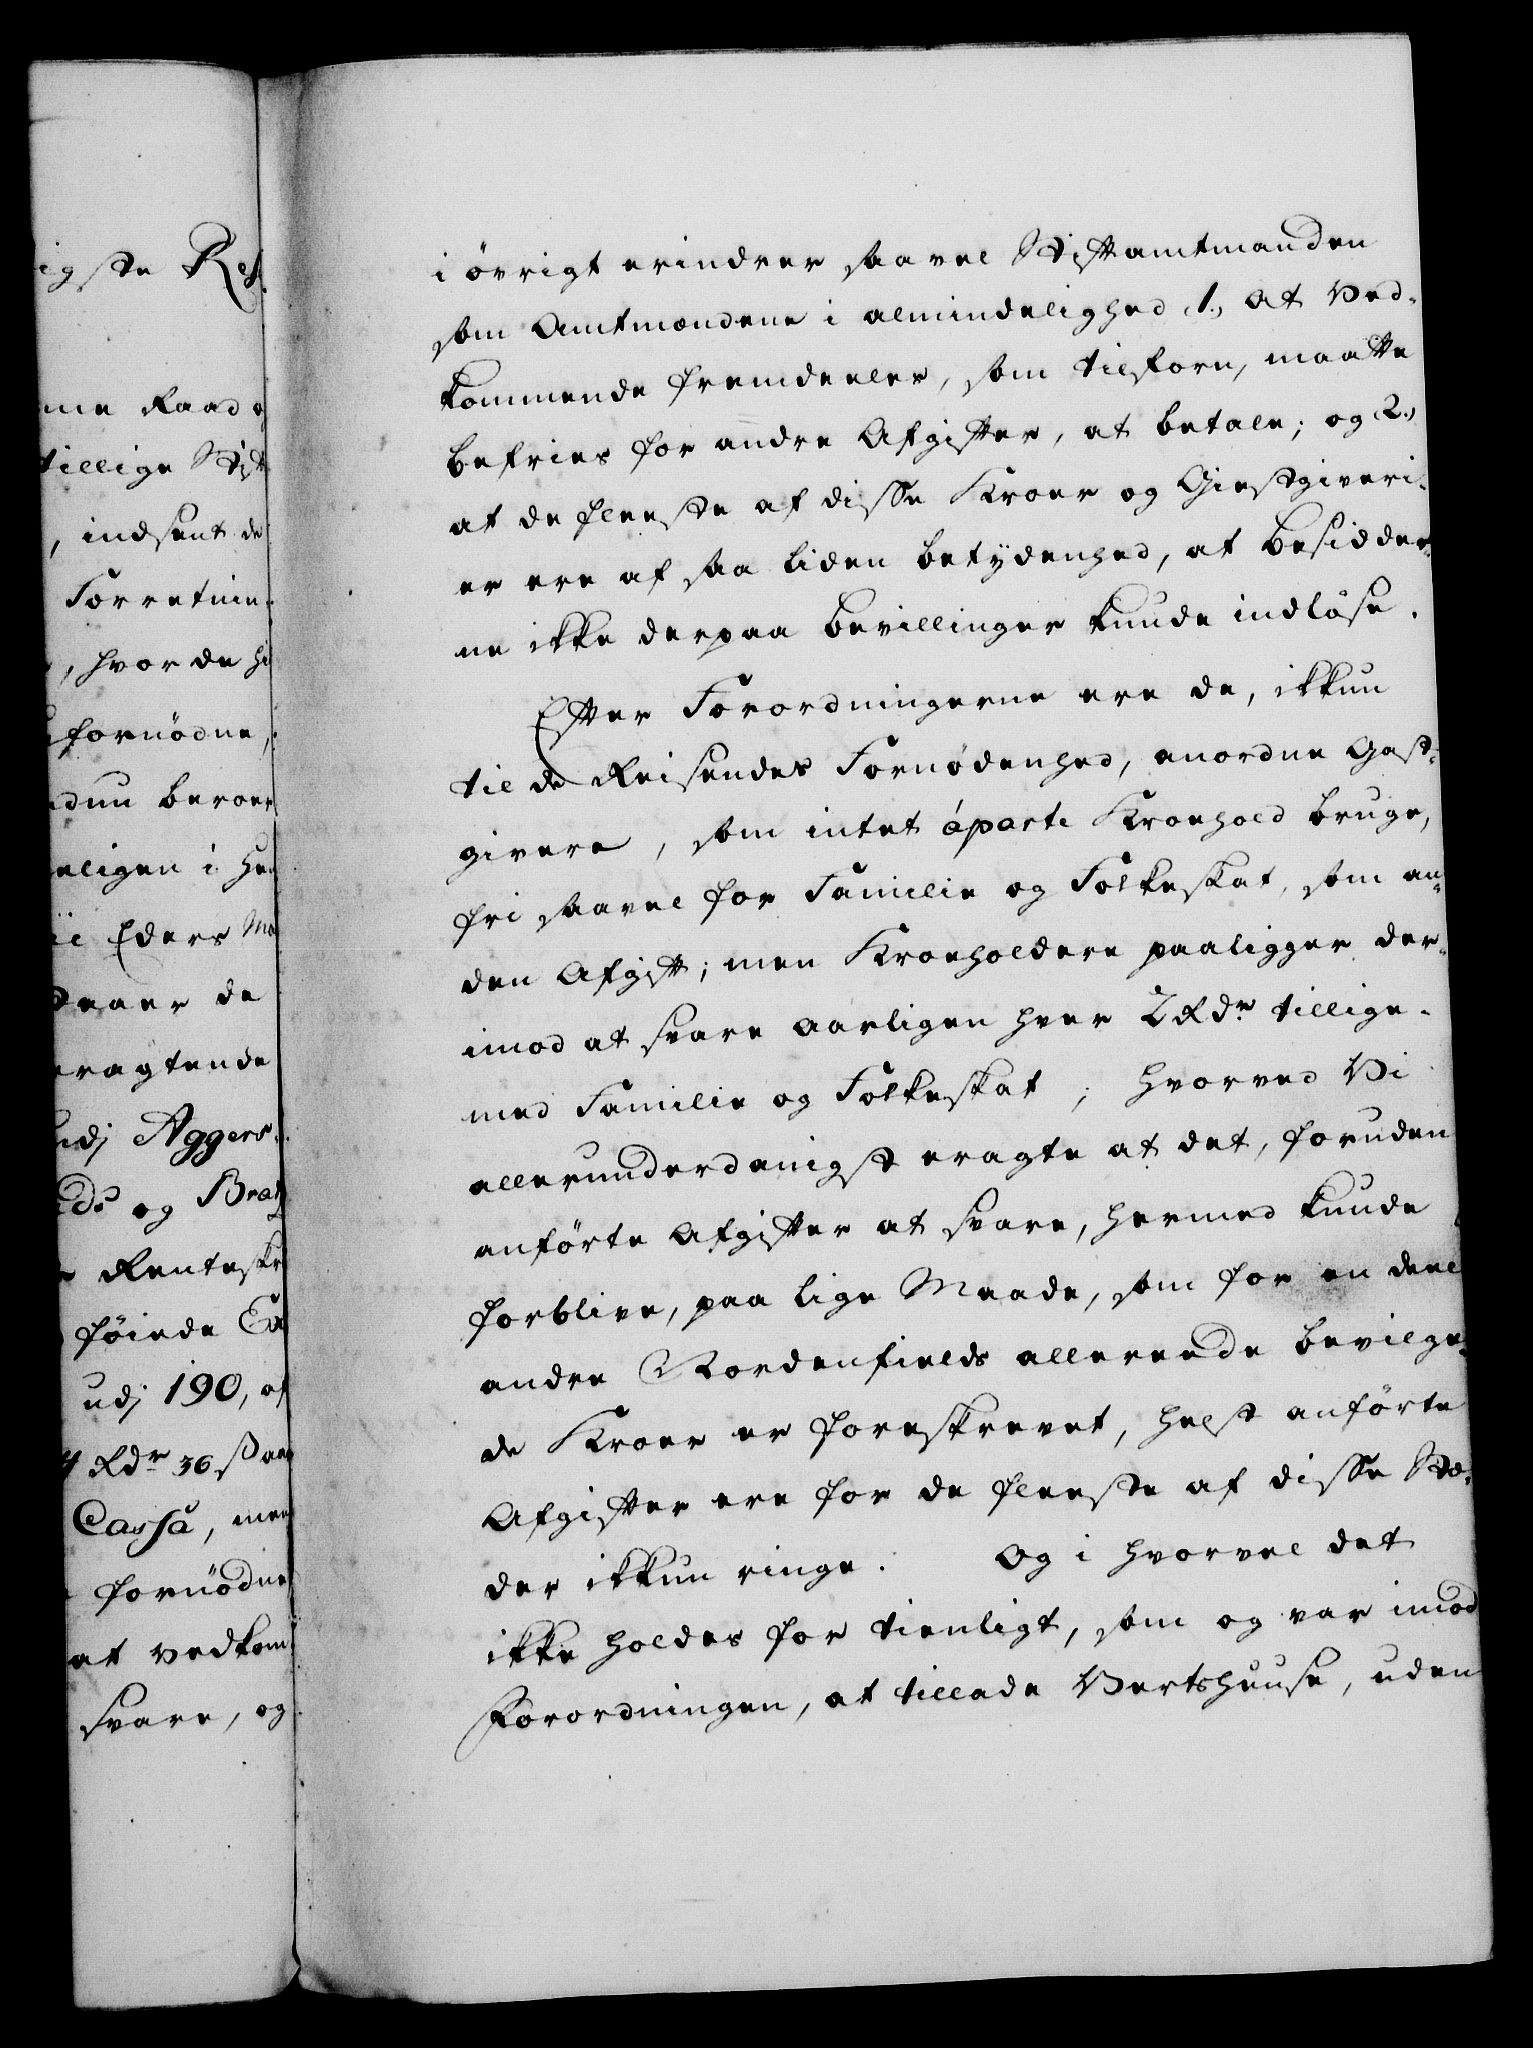 igste Res.
me Raad o
tillige Stift
, indsent de
Forretnin-
, hvor de hi
fornödne,
dnu beroer
eligen i He
Eders Ma
de
eragtende
udj Aggers-
og Brat
Renteskr
föiede Ex
udj 190, af
4 Rdr 36 ß
Cassa, men
fornödne
at vedkom-
svare, og
i övrigt erindrer saavel Stiftamtmanden
som Amtmændene i almindelighed 1., at Ved-
kommende fremdeeles, som tilforn, maatte
befries for andre Afgifter, at betale; og 2.,
at de fleeste af disse Kroer og Giestgiveri-
er ere af saa liden betydenhed, at besidder-
ne ikke derpaa bevillinger kunde indlöse.
Efter Forordningerne ere de, ikkun
til de Reisendes Fornødenhed, anordne Gast-
givere, som intet áparte Kroehold bruge,
fri saavel for Familie og Folkeskat, som an-
den Afgift; men Kroeholdere paaligger der-
imod at svare aarligen hver 2 Rdr tillige-
med Familie og Folkeskat; hvorved Vi
allerunderdanigst eragte at det, foruden
anförte Afgifter at svare, hermed kunde
forblive, paa lige Maade, som for en deel
andre Nordenfields allereede bevilge-
de Kroer er foreskrevet, helst anförte
Afgifter ere for de fleeste af disse Stæ-
der ikkun ringe. Og i hvorvel det
ikke holdes for tienligt, som og var imod
Forordningen, at tillade Vertshuuse, uden